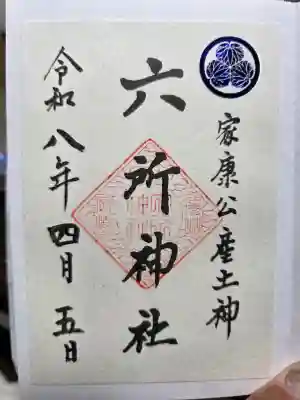 家康公産土神
六所神社
令和八年四月五日